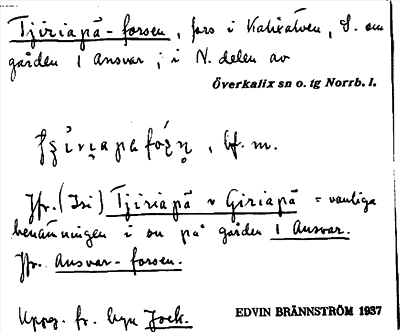 Tjiriapä-forsen, fors i Kalixälven, S. om
gården 1 Ansvar; i N. delen av
Överkalix sn o. tg Norrb. l.
, bf. m.
Jfr. (Isi) Tjiriapä v Giriapä = vanliga
benämningen i on på gården 1 Ansvar.
Jfr. Ansvar-forsen.
Uppg. fr. byn Jock.
EDVIN BRÄNNSTRÖM 1937